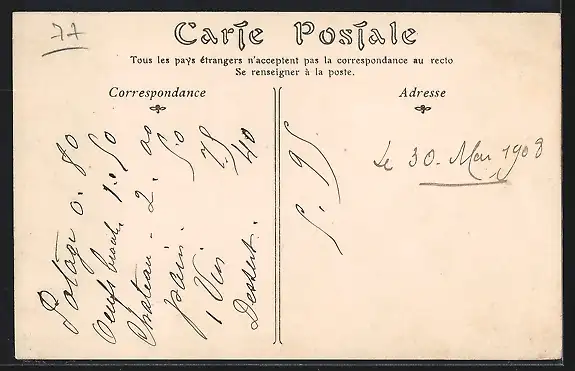 77
Carte Postale
Tous les pays étrangers n'acceptent pas la correspondance au recto
Se renseigner à la poste.
Correspondance
Adresse
Potage 0. 80
Oeufs 1. 50
Chateau. 2. 00
pain. 50
1 Vin 75
Dessert. 40
5. 95
Le 30. Mai 1908